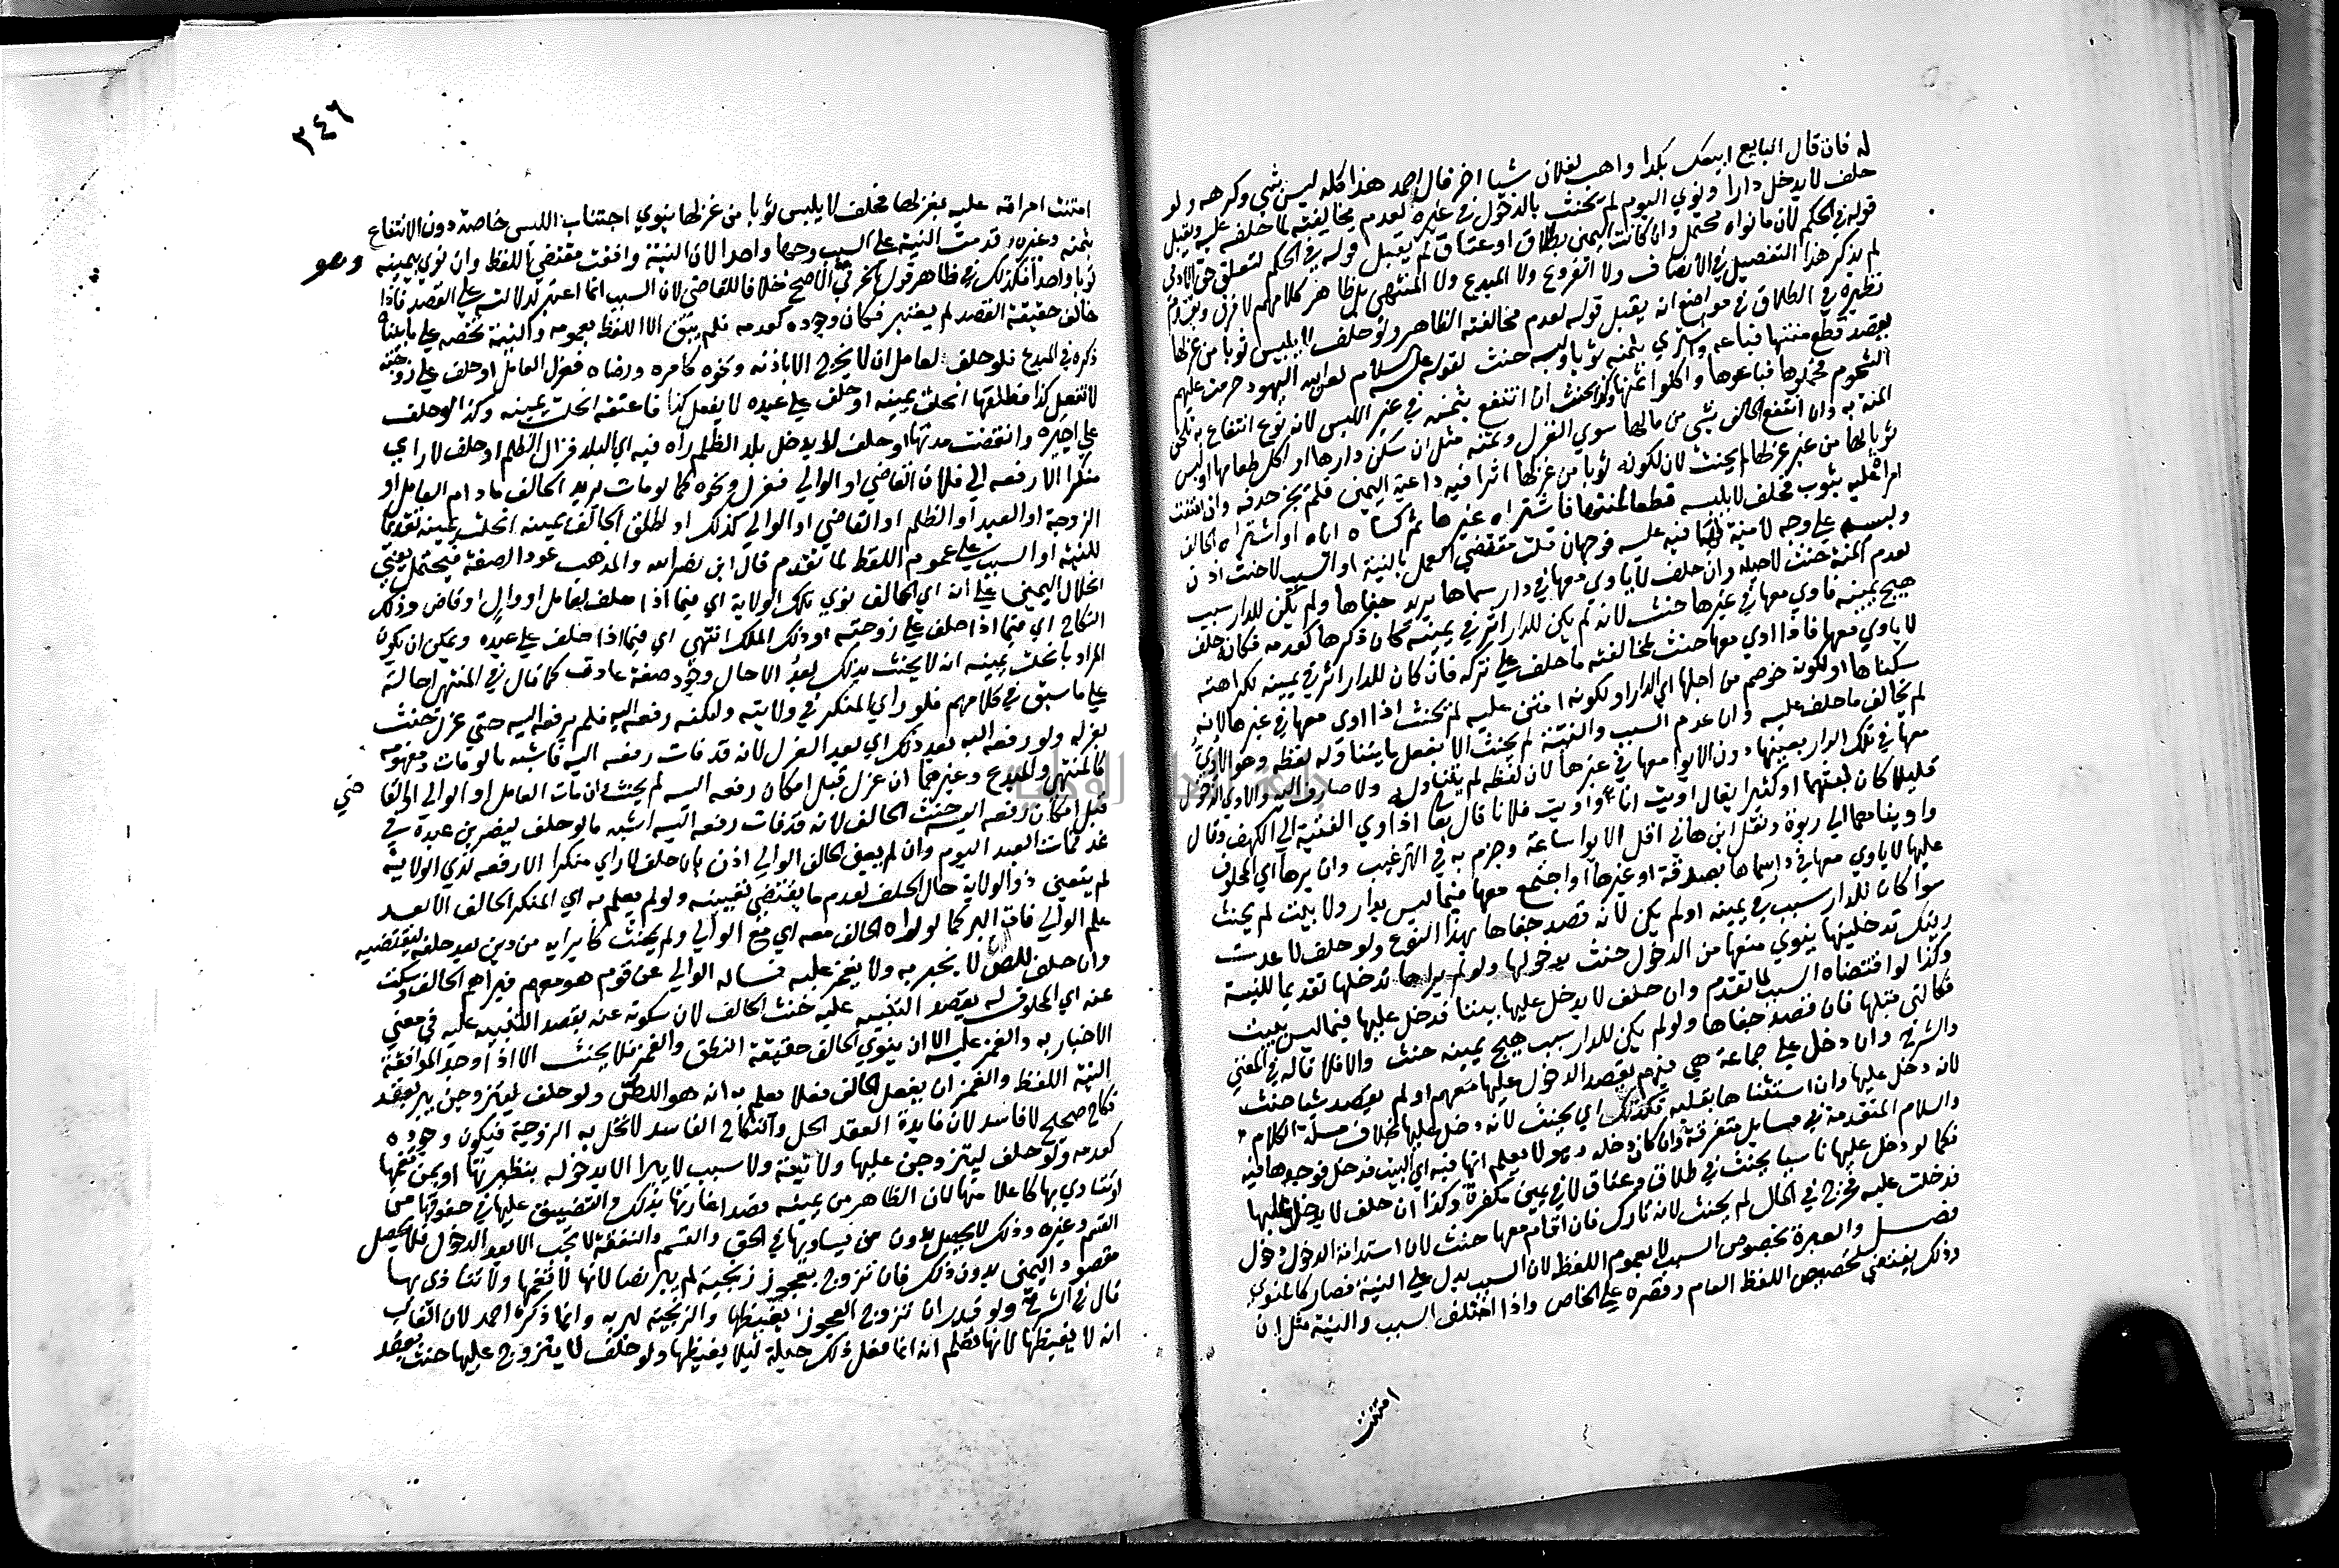 له فان قال البايع ابيعك بكذا واهب لفلان شيا اخر قال احمد هذا كله ليس بشي وكرهه ولو
حلف لا يدخل دارا ونوي اليوم لم يحنث بالدخول في غيره لعدم مخالفته لما حلف عليه ويقبل
قوله في الحكم لان ما نواه محتمل وان كانت اليمين بطلاق او عتاق لم يقبل قوله في الحكم لتعلق حق الادمي
لم يذكر هذا التفصيل في الانصاف ولا الفروع ولا المبدع ولا المنتهي بل ظاهر كلامهم لا فرق وتقدم
نظيره في الطلاق في مواضع انه يقبل قوله لعدم مخالفته الظاهر ولو حلف لا يلبس ثوبا من غزلها
يقصد قطع منتها فباعه واشتري بثمنه ثوبا ولبسه حنث لقوله عليه السلام لعن الله اليهود حرمت عليهم
الشحوم فجملوها فباعوها واكلوا ثمنها وكذا يحنث ان انتفع بثمنه في غير اللبس لانه نوع انتفاع به تلحق
المنة به وان انتفع الحالف بشي من مالها سوي الغزل وثمنه مثل ان سكن دارها او اكل طعامها او لبس
ثوبا لها من غير غزلها لم يحنث لان لكونه ثوبا من غزلها اثرا فيه داعية اليمين فلم يجز حذفه وان امتنت
امراة عليه بثوب فحلف لا يلبسه قطعا لمنتها فاشتراه غيرها ثم كساه اياه او اشتراه الحالف
ولبسه علي وجه لا منة لها فيه عليه فوجهان قلت مقتضي العمل بالنية او السبب لا حنث اذن
لعدم المنة حنث لاجله وان حلف لا ياوي معها في دار سماها يريد جفاها ولم يكن للدار سبب
هيج يمينه فاوي معها في غيرها حنث لانه لم يكن للدار اثر في يمينه كان ذكرها كعدمه فكانه حلف
لا ياوي معها فاذا اوي معها حنث لمخالفته ما حلف علي تركه فان كان للدار اثر في يمينه لكراهته
سكناها او لكونه خوصم من اجلها اي الدار او لكونه امتن عليه لم يحنث اذا اوي معها في غيرها لانه
لم يخالف ما حلف عليه وان عدم السبب والنية لم يحنث الا بفعل ما يتناوله لفظه وهو الاوي
معها في تلك الدار بعينها دون الايوا معها في غيرها لان لفظه لم يتناوله ولا صارف اليه والاوي الدخول
قليلا كان لبثهما او كثيرا يقال اويت انا واويت فلانا قال تعا اذ اوي الفتية الي الكهف وقال
واويناهما الي ربوة ونقل ابن هاني اقل الايوا ساعة وجزم به في الترغيب وان برها اي المحلوف
عليها لا ياوي معها في دار سماها بصدقة او غيرها او اجتمع معها فيما ليس بدار ولا بيت لم يحنث
سوا كان للدار سبب في يمينه او لم يكن لانه قصد جفاها بهذا النوع ولو حلف لا عدت
ريتك تدخلينها ينوي منعها من الدخول حنث بدخولها ولو لم يراها تدخلها تقديما للنية
وكذا لو اقتضاه السبب لما تقدم وان حلف لا يدخل عليها بيتا فدخل عليها فيما ليس ببيت
فكالتي قبلها فان قصد جفاها ولو لم يكن للدار سبب هيج يمينه حنث والا فلا قاله في المغني
والشرح وان دخل علي جماعة هي فيهم يقصد الدخول عليها معهم او لم يقصد شيا حنث
لانه دخل عليها وان استثناها بقلبه فكذلك اي يحنث لانه دخل عليها بخلاف مسلة الكلام
والسلام المتقدمة في مسايل متفرقة وان كان دخله وهو لا يعلم انها فيه اي البيت فدخل فوجدها فيه
فكما لو دخل عليها ناسيا يحنث في طلاق وعتاق لا في يمين مكفرة وكذا ان حلف لا يدخل عليها
فدخلت عليه فخرج في الحال لم يحنث لانه تارك فان اقام معها حنث لان استدامة الدخول دخول
فصل والعبرة بخصوص السبب لا بعموم اللفظ لان السبب يدل علي النية فصار كالمنوي
وذلك يقتضي تخصيص اللفظ العام وقصره علي الخاص واذا اختلف السبب والنية مثل ان
امتنت
٣٤٦
امتنت امراته عليه بغزلها فحلف لا يلبس ثوبا من غزلها ينوي اجتناب اللبس خاصة دون الانتفاع
بثمنه وغيره قدمت النية علي السبب وجها واحدا لان النية وافقت مقتضي اللفظ وان نوي بيمينه وهو
ثوبا واحدا فكذلك في ظاهر قول الخرقي الاصح خلافا للقاضي لان السبب انما اعتبر لدلالته علي القصد فاذا
خالف حقيقة القصد لم يعتبر فكان وجوده كعدمه فلم يبق الا اللفظ بعمومه والنية تخصه علي ما بيناه
ذكره في المبدع فلو حلف لعامل ان لا يخرج الا باذنه ونحوه كامره ورضاه فعزل العامل او حلف علي زوجته
لا تفعل كذا فطلقها انحلت يمينه او حلف علي عبده لا يفعل كذا فاعتقه انحلت يمينه وكذا لو حلف
علي اجيره وانقضت مدتها او حلف لا يدخل بلد الظلم راه فيه اي البلد فزال الظلم او حلف لا راي
منكرا الا رفعه الي فلان القاضي او الوالي فعزل ونحوه كما لو مات يريد الحالف ما دام العامل او
الزوجة او العبد او الظلم او القاضي او الوالي كذلك او اطلق الحالف يمينه انحلت يمينه تقديما
للنية او السبب علي عموم اللفظ لما تقدم قال ابن نصر الله والمذهب عود الصفة فيحتمل يعني
انحلال اليمين علي ان اي الحالف نوي تلك الولاية اي فيما اذا حلف لعامل او وال او قاض وذلك
النكاح اي فيما اذا حلف علي زوجته او ذلك الملك انتهي اي فيما اذا حلف علي عبده ويمكن ان يكون
المراد بانحلت يمينه انه لا يحنث بذلك بعد الا حال وجود صفة عادت كما قال في المنتهي احالة
علي ما سبق في كلامهم فلو راي المنكر في ولايته وامكنه رفعه اليه فلم يرفعه اليه حتي عزل حنث
بعزله ولو رفعه اليه بعد ذلك اي بعد العزل لانه قد فات رفعه اليه فاشبه ما لو مات ومفهومه
كالمنتهي والمبدع وغيرهما ان عزل قبل امكان رفعه اليه لم يحنث وان مات العامل او الوالي اي القاضي
قبل امكان رفعه اليه حنث الحالف لانه قد فات رفعه اليه اشبه ما لو حلف ليضربن عبده في
غد فمات العبد اليوم وان لم يعين الحالف الوالي اذن بان حلف لا راي منكرا الا رفعه لذي الولاية
لم يتعين ذو الولاية حال الحلف لعدم ما يقتضي تعيينه ولو لم يعلم به اي المنكر الحالف الا بعد
علم الوالي فات البر كما لو راه الحالف معه اي مع الوالي ولم يحنث كابرايه من دين بعد حلفه ليقتضيه
وان حلف للص لا يخبر به ولا يغمز عليه فساله الوالي عن قوم هو معهم فبراهم الحالف وسكت
عنه اي المحلوف له يقصد التنبيه عليه حنث الحالف لان سكوته عنه بقصد التنبيه عليه في معني
الاخبار به والغمز عليه الا ان ينوي الحالف حقيقة النطق والغمز فلا يحنث الا اذا وجد لموافقة
النية اللفظ والغمز ان يفعل الحالف فعلا يعلم به انه هو اللص ولو حلف ليتزوجن يبر بعقد
نكاح صحيح لا فاسد لان فايدة العقد الحل والنكاح الفاسد لا تحل به الزوجية فيكون وجوده
كعدمه ولو حلف ليتزوجن عليها ولا نية ولا سبب لا يبرا الا بدخوله بنظيرتها او بمن تغمها
او تتاذي بها كاعلا منها لان الظاهر من يمينه قصد اغارتها بذلك والتضييق عليها في حقوقها من
القسم وغيره وذلك لا يحصل بدون من يساويها في الحق والقسم والنفقة لا تجب الا بعد الدخول فلا يحصل
مقصود اليمين بدون ذلك فان تزوج بعجوز زنجية لم يبر نصا لانها لا تغمها ولا تتاذي بها
قال في الشرح ولو قدر ان تزوج العجوز يغيظها والزنجية لبر به وانما ذكره احمد لان الغالب
انه لا يغيظها لانها تعلم انه انما فعل ذلك حيلة ليلا يغيظها ولو حلف لا يتزوج عليها حنث بعقد